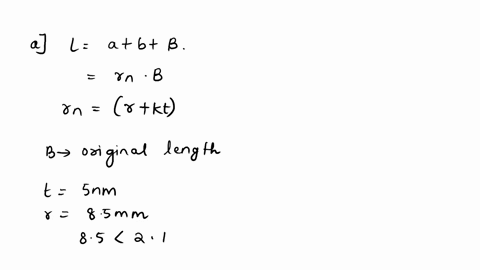 a] L = a + b + B.
= rn · B
rn = (r + kt)
B → original length
t = 5nm
r = 8.5mm
8.5 < 2.1